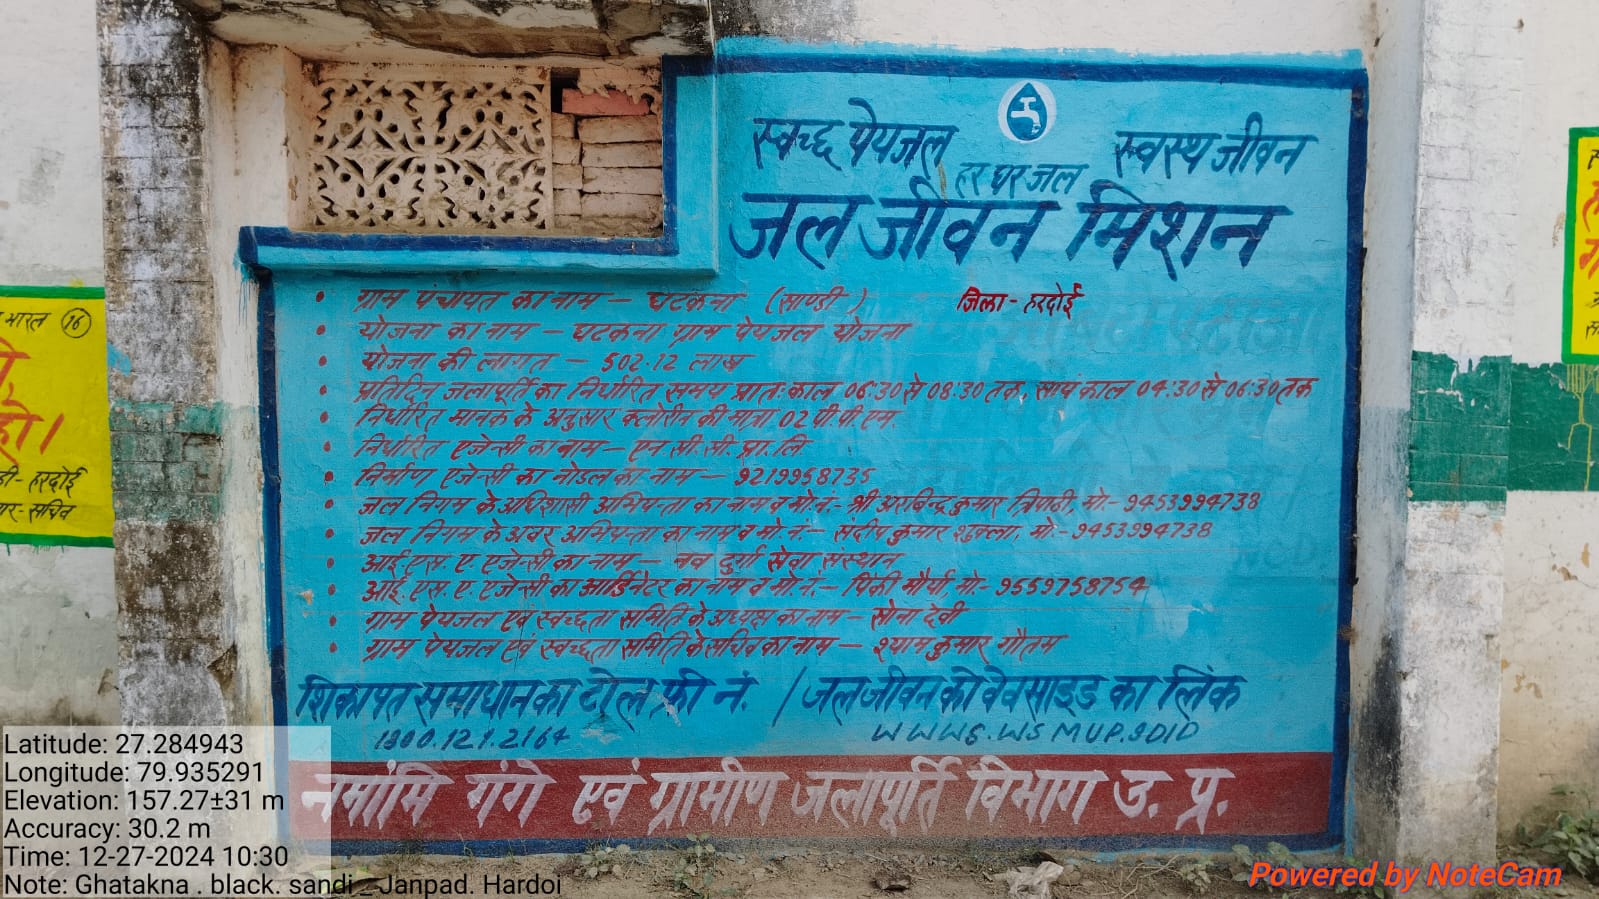 स्वच्छ पेयजल हर घर जल स्वस्थ जीवन
जल जीवन मिशन
• ग्राम पंचायत का नाम – घटकना (साण्डी) जिला - हरदोई
• योजना का नाम – घटकना ग्राम पेयजल योजना
• योजना की लागत – 502.12 लाख
• प्रतिदिन जलापूर्ति का निर्धारित समय प्रातः काल 06:30 से 08:30 तक, सायं काल 04:30 से 06:30 तक
• निर्धारित मानक के अनुसार क्लोरीन की मात्रा 02 पी.पी.एम.
• निर्धारित एजेन्सी का नाम – एन.सी.सी. प्रा.लि.
• निर्माण एजेन्सी का नोडल का नाम – 9219958735
• जल निगम के अधिशासी अभियन्ता का नाम व मो.नं.- श्री अरबिन्द्र कुमार त्रिपाठी, मो.- 9453994738
• जल निगम के अवर अभियन्ता का नाम व मो.नं.- संदीप कुमार शुक्ला, मो.- 9453994738
• आई.एस.ए. एजेन्सी का नाम – नव दुर्गा सेवा संस्थान
• आई.एस.ए. एजेन्सी का आर्डिनेटर का नाम व मो.नं.- पिंकी मौर्या, मो.- 9559758754
• ग्राम पेयजल एवं स्वच्छता समिति के अध्यक्ष का नाम – सोना देवी
• ग्राम पेयजल एवं स्वच्छता समिति के सचिव का नाम – श्याम कुमार गौतम
शिकायत समाधान का टोल फ्री नं. / जल जीवन की वेवसाइड का लिंक
1800.121.2164 WWWS.WSMUP.9DID
नमामि गंगे एवं ग्रामीण जलापूर्ति विभाग उ. प्र.
भारत 16
हो।
हरदोई
सचिव
Latitude: 27.284943
Longitude: 79.935291
Elevation: 157.27±31 m
Accuracy: 30.2 m
Time: 12-27-2024 10:30
Note: Ghatakna . black. sandi _ Janpad. Hardoi
Powered by NoteCam